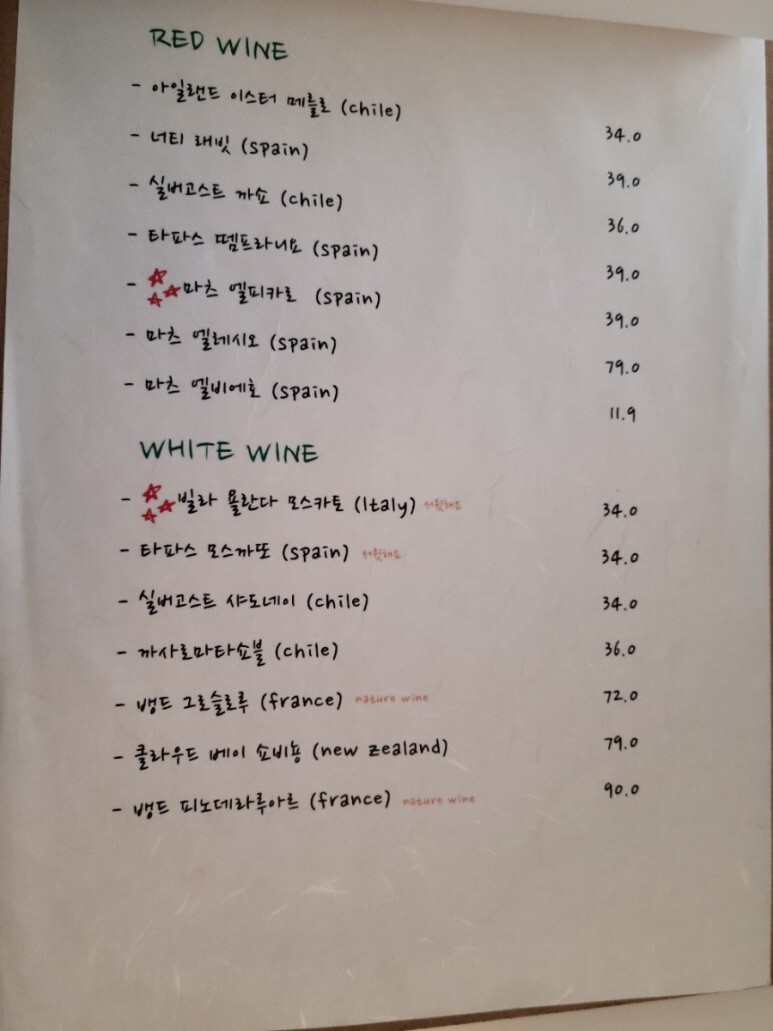 RED WINE
- 아일랜드 이스터 메를로 (chile) 34.0
- 너티 래빗 (spain) 39.0
- 실버고스트 까쇼 (chile) 36.0
- 타파스 뗌프라니요 (spain) 39.0
- 마츠 엘피카로 (spain) 39.0
- 마츠 엘레시오 (spain) 79.0
- 마츠 엘비에호 (spain) 11.9
WHITE WINE
- 빌라 욜란다 모스카토 (Italy) 34.0
- 타파스 모스까또 (spain) 34.0
- 실버고스트 샤도네이 (chile) 34.0
- 까사로마타쇼블 (chile) 36.0
- 뱅드 그로슬로루 (france) nature wine 72.0
- 클라우드 베이 쇼비뇽 (new zealand) 79.0
- 뱅드 피노데라루아르 (france) nature wine 90.0